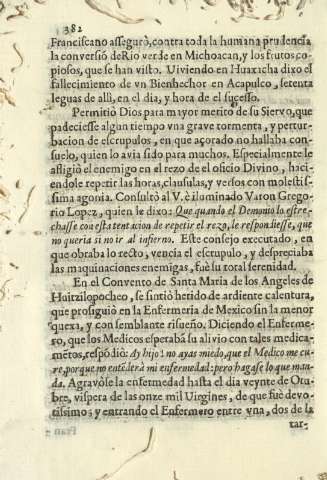 382
Franciscano assegurò, contra toda la humana prudencia
la conversiõ de Rio verde en Michoacan, y los frutos co
piosos, que se han visto. Uiviendo en Huaxicha dixo el
fallecimiento de vn Bienhechor en Acapulco, setenta
leguas de alli, en el dia, y hora de el sucesso.
Permitiò Dios para mayor merito de su Siervo, que
padeciesse algun tiempo vna grave tormenta, y pertur-
bacion de escrupulos, en que açorado no hallaba con-
suelo, quien lo avia sido para muchos. Especialmente le
afligiò el enemigo en el rezo de el oficio Divino, haci-
endole repetir las horas, clausulas, y versos con molestis-
sima agonia. Consultò al V. è iluminado Varon Grego-
rio Lopez, quien le dixo: Que quando el Demonio lo estre-
chasse con esta tentacion de repetir el rezo, le respondiesse, que
no queria si no ir al infierno. Este consejo executado, en
que obraba lo recto, vencia el escrupulo, y despreciaba
las maquinaciones enemigas, fuè su total serenidad.
En el Convento de Santa Maria de los Angeles de
Huitzilopocheo, se sintiò herido de ardiente calentura,
que prosiguiò en la Enfermeria de Mexico sin la menor
quexa, y con semblante risueño. Diciendo el Enferme-
ro, que los Medicos esperabã su alivio con tales medica-
mẽtos, respõdiò: Ay hijo! no ayas miedo, que el Medico me cu-
re, porque no entẽderá mi enfermedad: pero hagase lo que man-
da. Agravòse la enfermedad hasta el dia veynte de Otu-
bre, vispera de las onze mil Uirgines, de que fuè devo-
tissimo; y entrando el Enfermero entre vna, y dos de la
tar-